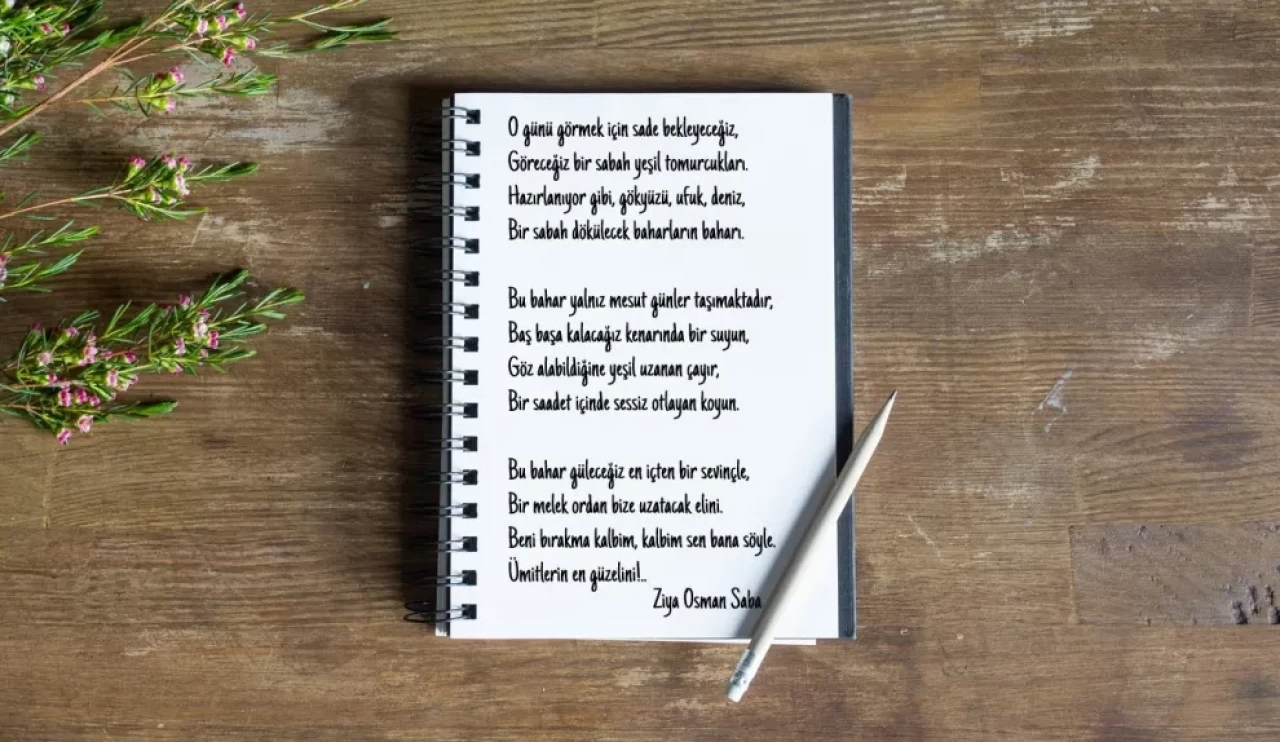 O günü görmek için sade bekleyeceğiz,
Göreceğiz bir sabah yeşil tomurcukları.
Hazırlanıyor gibi, gökyüzü, ufuk, deniz,
Bir sabah dökülecek baharların baharı.
Bu bahar yalnız mesut günler taşımaktadır,
Baş başa kalacağız kenarında bir suyun,
Göz alabildiğine yeşil uzanan çayır,
Bir saadet içinde sessiz otlayan koyun.
Bu bahar güleceğiz en içten bir sevinçle,
Bir melek ordan bize uzatacak elini.
Beni bırakma kalbim, kalbim sen bana söyle.
Ümitlerin en güzelini!..
Ziya Osman Saba